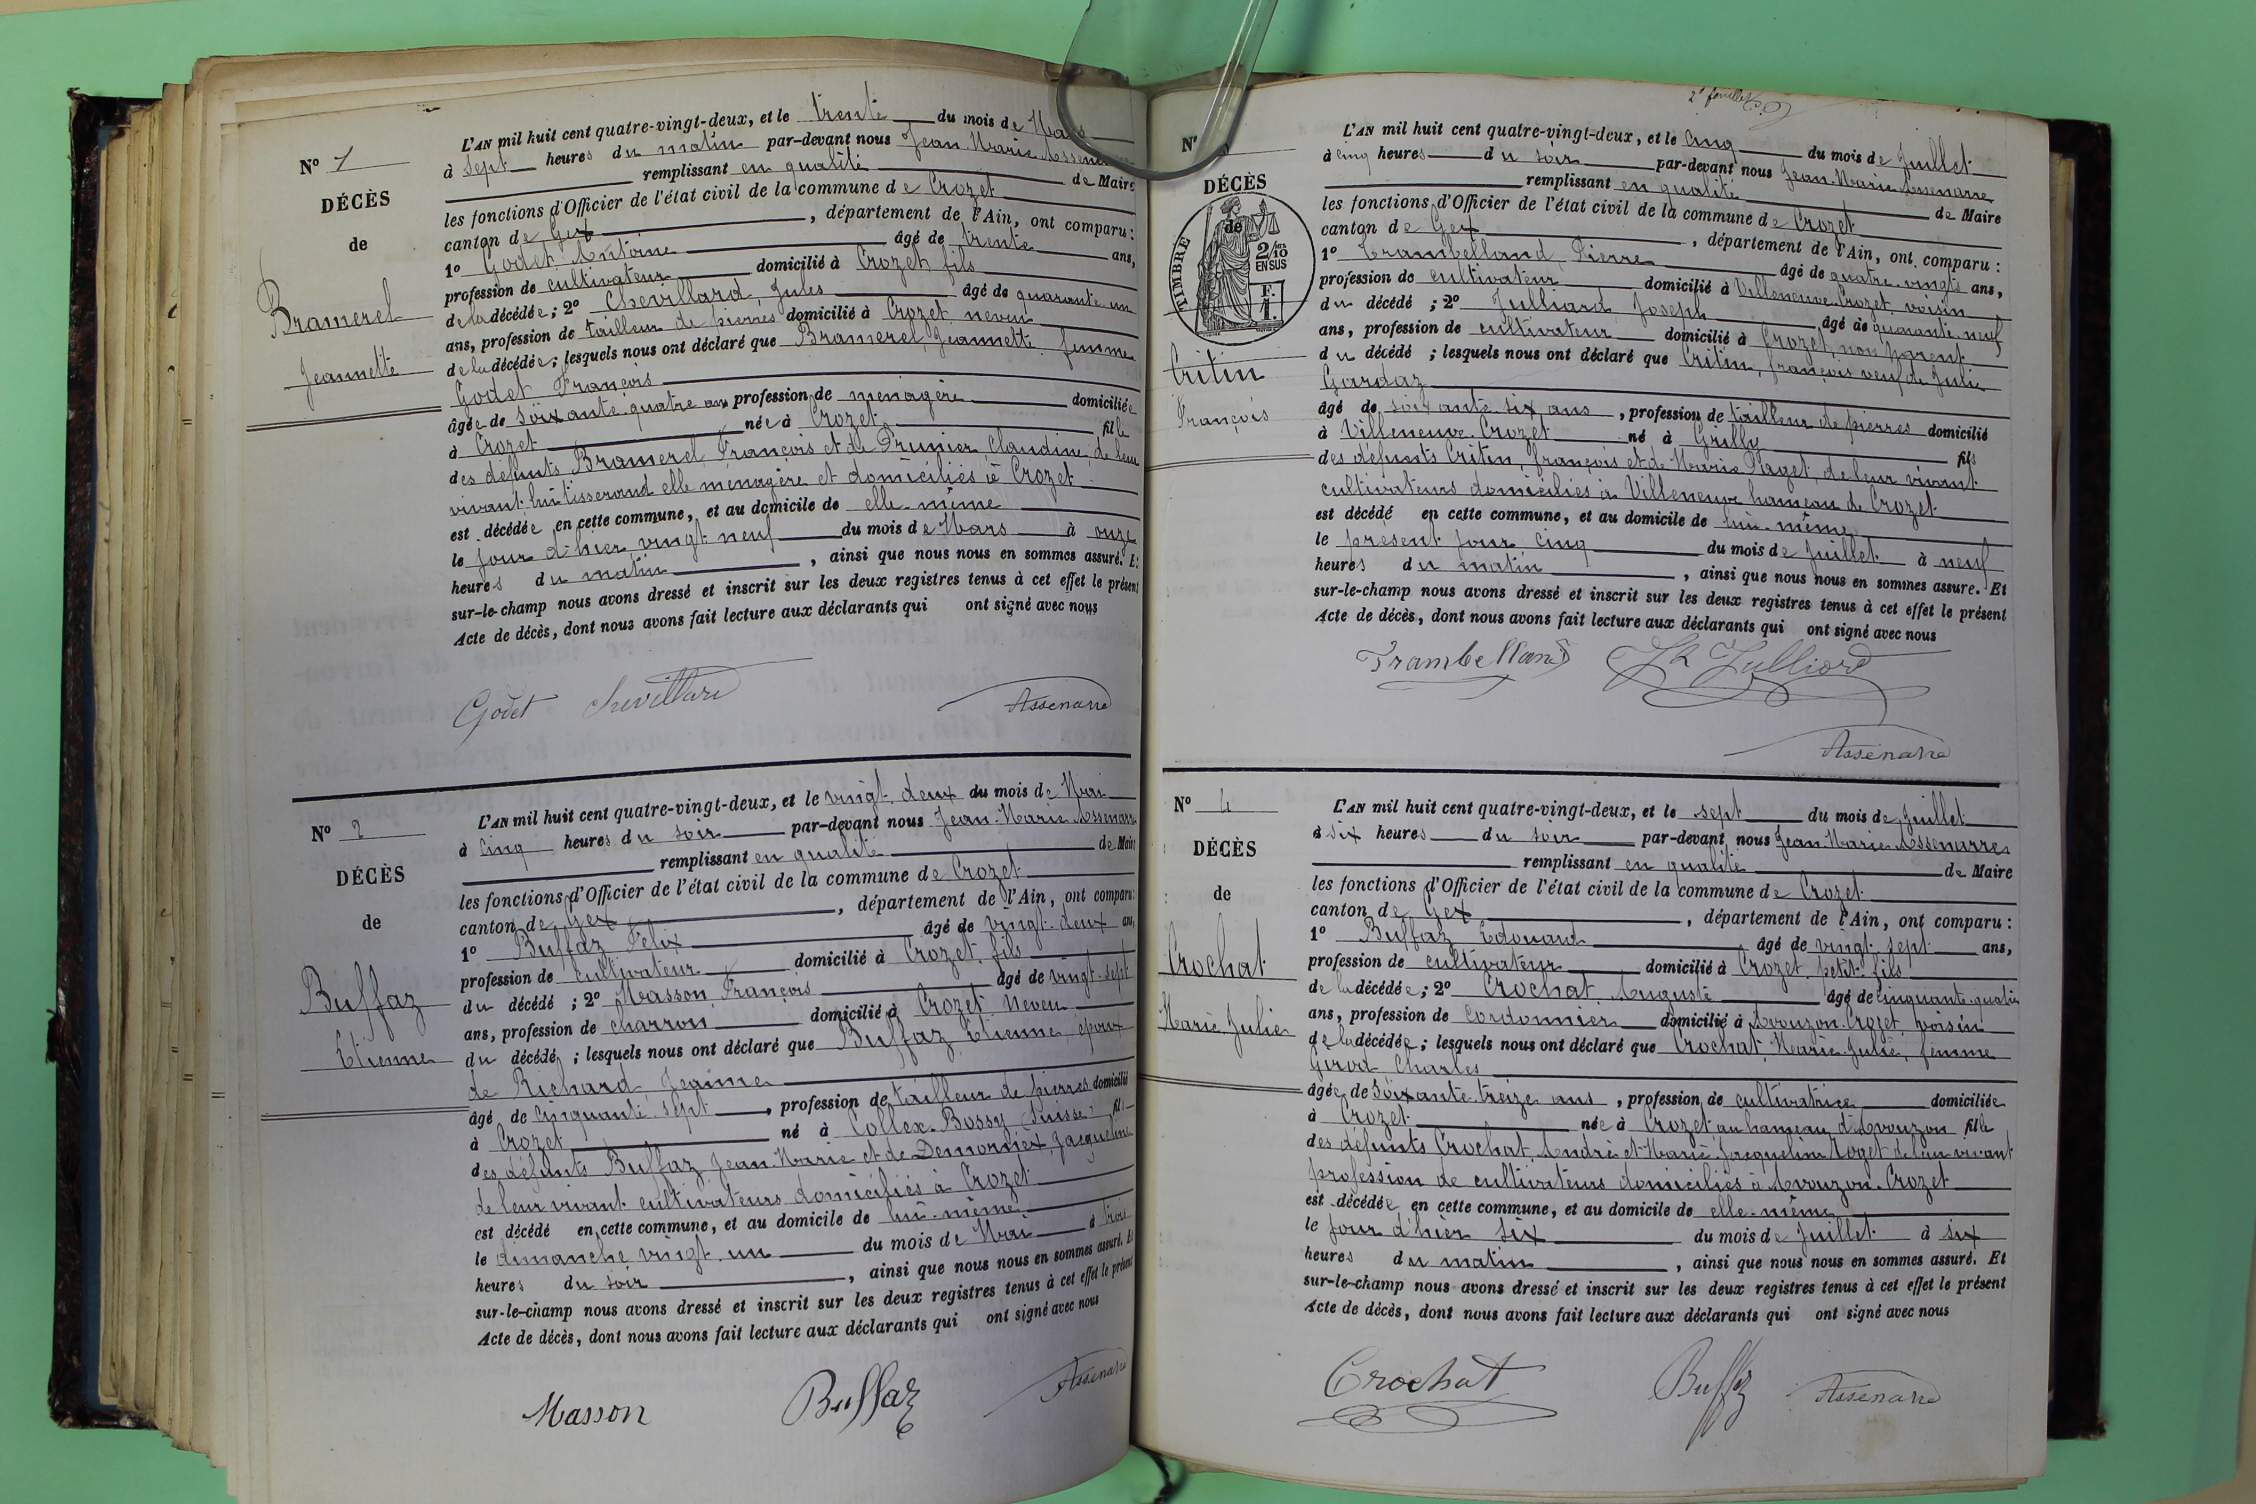 L'AN mil huit cent quatre-vingt-deux, et le trente du mois de Mars
Nº 1
à sept heures du matin par-devant nous Jean Marie Assenarre
remplissant en qualité de Maire
DÉCÈS
les fonctions d'Officier de l'état civil de la commune de Crozet
de
canton de Gex, département de l'Ain, ont comparu:
1º Godet Antoine âgé de trente ans,
profession de cultivateur domicilié à Crozet, fils
Bramerel
de la décédée; 2º Chevillard, Jules âgé de quarante un
ans, profession de tailleur de pierres domicilié à Crozet neveu
Jeannette
de la décédée; lesquels nous ont déclaré que Bramerel, Jeannette femme
Godet François
âgée de soixante quatre ans profession de ménagère domiciliée
à Crozet née à Crozet fille
des défunts Bramerel, François et de Prunier, Claudine, de leur
vivant lui tisserand elle ménagère et domiciliés à Crozet
est décédée en cette commune, et au domicile de elle-même
le jour d'hier vingt neuf du mois de Mars à onze
heures du matin, ainsi que nous nous en sommes assuré. Et
sur-le-champ nous avons dressé et inscrit sur les deux registres tenus à cet effet le présent
Acte de décès, dont nous avons fait lecture aux déclarants qui ont signé avec nous
Godet Chevillard Assenarre
L'AN mil huit cent quatre-vingt-deux, et le vingt-deux du mois de Mai
Nº 2
à cinq heures du soir par-devant nous Jean-Marie Assenarre
remplissant en qualité de Maire
DÉCÈS
les fonctions d'Officier de l'état civil de la commune de Crozet
de
canton de Gex, département de l'Ain, ont comparu:
1º Buffaz Félix âgé de vingt-deux ans,
profession de cultivateur domicilié à Crozet, fils
Buffaz
du décédé; 2º Masson, François âgé de vingt-sept
ans, profession de charron domicilié à Crozet, Neveu
Etienne
du décédé; lesquels nous ont déclaré que Buffaz, Etienne, époux
de Richard Jeanne
âgé de cinquante sept, profession de tailleur de pierres domicilié
à Crozet né à Collex-Bossy (Suisse) fils
des défunts Buffaz Jean-Marie et de Demornex, Jacqueline
de leur vivant cultivateurs domiciliés à Crozet
est décédé en cette commune, et au domicile de lui-même
le dimanche vingt-un du mois de Mai à trois
heures du soir, ainsi que nous nous en sommes assuré. Et
sur-le-champ nous avons dressé et inscrit sur les deux registres tenus à cet effet le présent
Acte de décès, dont nous avons fait lecture aux déclarants qui ont signé avec nous
Masson Buffaz Assenarre
2e feuillet
L'AN mil huit cent quatre-vingt-deux, et le cinq du mois de Juillet
Nº
à cinq heures du soir par-devant nous Jean-Marie Assenarre
remplissant en qualité de Maire
DÉCÈS
les fonctions d'Officier de l'état civil de la commune de Crozet
de
TIMBRE
2/10 EN SUS
F. 1.
canton de Gex, département de l'Ain, ont comparu:
1º Trambelland, Pierre âgé de quatre-vingts ans,
profession de cultivateur domicilié à Villeneuve-Crozet voisin
du décédé; 2º Julliard, Joseph âgé de quarante-neuf
ans, profession de cultivateur domicilié à Crozet, non parent
Critin
du décédé; lesquels nous ont déclaré que Critin, françois veuf de Julie
Gardaz
François
âgé de soixante-six ans, profession de tailleur de pierres domicilié
à Villeneuve-Crozet né à Grilly fils
des défunts Critin, françois et de Marie Piaget, de leur vivant
cultivateurs domiciliés à Villeneuve hameau de Crozet
est décédé en cette commune, et au domicile de lui-même
le présent jour cinq du mois de Juillet à neuf
heures du matin, ainsi que nous nous en sommes assuré. Et
sur-le-champ nous avons dressé et inscrit sur les deux registres tenus à cet effet le présent
Acte de décès, dont nous avons fait lecture aux déclarants qui ont signé avec nous
Trambelland Jh Julliard
Assenarre
L'AN mil huit cent quatre-vingt-deux, et le sept du mois de Juillet
Nº 4
à six heures du soir par-devant nous Jean-Marie Assenarre
DÉCÈS
remplissant en qualité de Maire
les fonctions d'Officier de l'état civil de la commune de Crozet
de
canton de Gex, département de l'Ain, ont comparu:
1º Buffaz Edouard âgé de vingt-sept ans,
profession de cultivateur domicilié à Crozet, petit-fils
Crochat
de la décédée; 2º Crochat, Auguste âgé de cinquante-quatre
ans, profession de cordonnier domicilié à Avouzon-Crozet, voisin
Marie Julie
de la décédée; lesquels nous ont déclaré que Crochat, Marie-Julie, femme
Girod Charles
âgée de soixante-treize ans, profession de cultivatrice domiciliée
à Crozet née à Crozet au hameau d'Avouzon fille
des défunts Crochat, André et Marie Jacqueline Roget de leur vivant
profession de cultivateurs domiciliés à Avouzon-Crozet
est décédée en cette commune, et au domicile de elle-même
le jour d'hier six du mois de Juillet à six
heures du matin, ainsi que nous nous en sommes assuré. Et
sur-le-champ nous avons dressé et inscrit sur les deux registres tenus à cet effet le présent
Acte de décès, dont nous avons fait lecture aux déclarants qui ont signé avec nous
Crochat Buffaz Assenarre